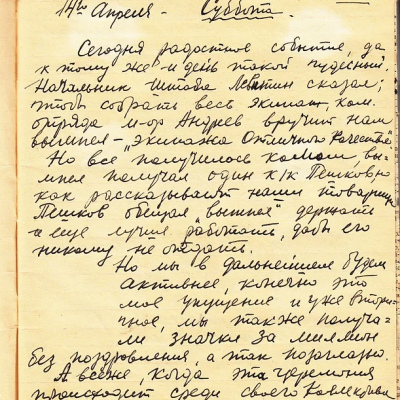 14го Апреля - Суббота.
Сегодня радостное событие, да
к тому же и день такой чудесный.
Начальник штаба сказал;
чтоб собрать весь экипаж, ком.
отряда м-ор Андреев вручит нам
вымпел - "экипажа Отличного Качества"
Но всё получилось комом, вы-
мпел получал один к/к Пешков,
как рассказывают наши товарищи
Пешков обещал "вымпел" держать
и ещё лучше работать, дабы его
никому не отдать.
Но мы в дальнейшем будем
активнее, конечно это
мое упущение и уже вторич-
ное, мы также получа-
ли значки за миллион
без поздравления, а так
А всё же, когда эта церемония
происходит среди своего коллектива